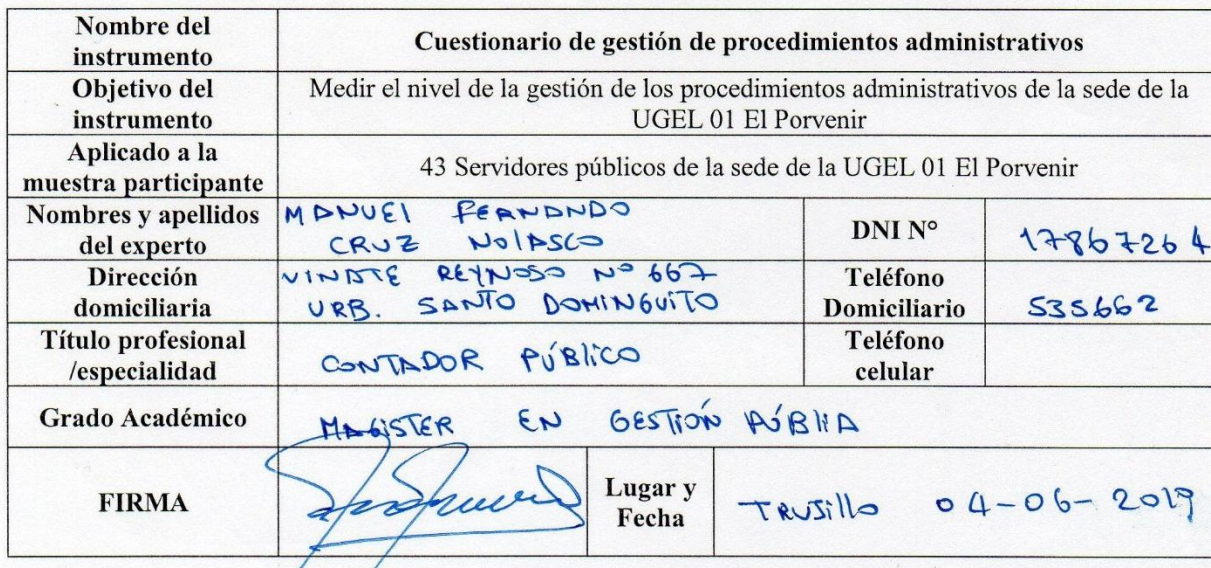 Nombre del
instrumento
Cuestionario de gestión de procedimientos administrativos
Objetivo del
instrumento
Medir el nivel de la gestión de los procedimientos administrativos de la sede de la
UGEL 01 El Porvenir
Aplicado a la
muestra participante
43 Servidores públicos de la sede de la UGEL 01 El Porvenir
Nombres y apellidos
del experto
MANUEl FERNANDO
CRUZ NOlASCO
DNI N°
17867264
Dirección
domiciliaria
VINATE REYNOSO Nº 667
URB. SANTO DOMINGUITO
Teléfono
Domiciliario
535662
Título profesional
/especialidad
CONTADOR PÚBlICO
Teléfono
celular
Grado Académico
MAGISTER EN GESTIÓN PÚBlIA
FIRMA
Lugar y
Fecha
TRUJIllo 04-06-2019